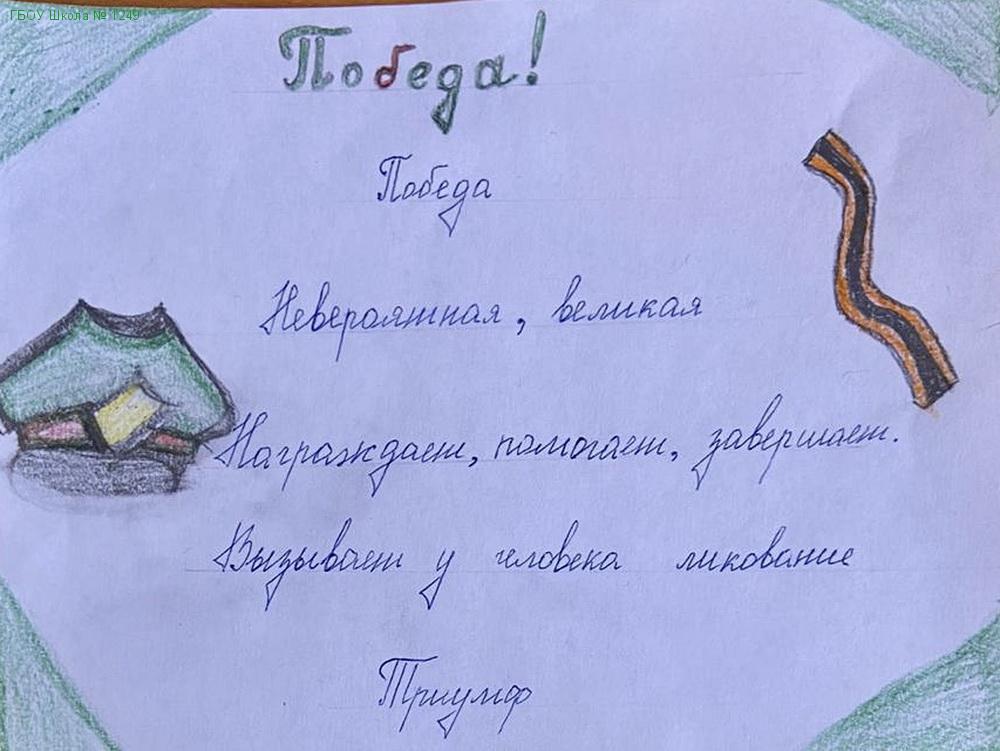 ГБОУ Школа № 1249
Победа!
Победа
Невероятная, великая
Награждает, помогает, завершает.
Вызывает у человека ликование
Триумф